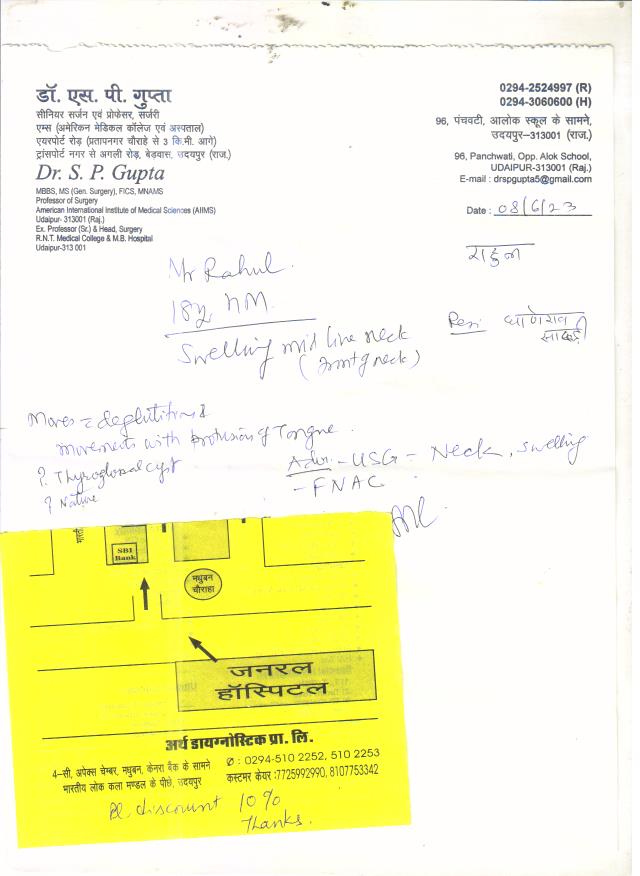 डॉ. एस. पी. गुप्ता
सीनियर सर्जन एवं प्रोफेसर, सर्जरी
एम्स (अमेरिकन मेडिकल कॉलेज एवं अस्पताल)
एयरपोर्ट रोड़ (प्रतापनगर चौराहे से 3 कि.मी. आगे)
ट्रांसपोर्ट नगर से अगली रोड़, बेड़वास, उदयपुर (राज.)
Dr. S. P. Gupta
MBBS, MS (Gen. Surgery), FICS, MNAMS
Professor of Surgery
American International Institute of Medical Sciences (AIIMS)
Udaipur- 313001 (Raj.)
Ex. Professor (Sr.) & Head, Surgery
R.N.T. Medical College & M.B. Hospital
Udaipur-313 001
0294-2524997 (R)
0294-3060600 (H)
96, पंचवटी, आलोक स्कूल के सामने,
उदयपुर-313001 (राज.)
96, Panchwati, Opp. Alok School,
UDAIPUR-313001 (Raj.)
E-mail : drspgupta5@gmail.com
Date : 08/6/23
राहुल
Mr Rahul
18y, HM
Resi घाणेराव
सादड़ी
Swelling mid line neck
(front of neck)
Moves = deglutition &
movements with protrusion of Tongue.
? Thyroglossal cyst
? Nature
Adv. - USG = Neck, swelling
- FNAC
भारतीय
SBI
Bank
मधुबन
चौराहा
जनरल
हॉस्पिटल
अर्थ डायग्नोस्टिक प्रा. लि.
4-सी, अपेक्स चेम्बर, मधुबन, केनरा बैंक के सामने
भारतीय लोक कला मण्डल के पीछे, उदयपुर
✆ : 0294-510 2252, 510 2253
कस्टमर केयर :7725992990, 8107753342
Pl. discount 10%
Thanks.